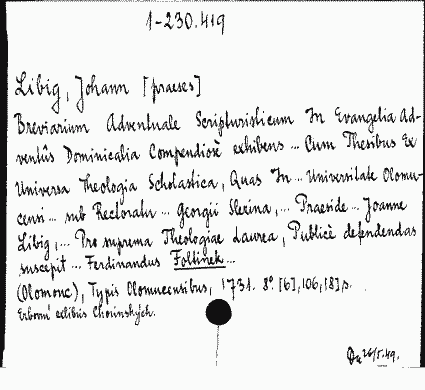 1-230.419
Libig, Johann [praeses]
Breviarium Adventuale Scripturisticum In Evangelia Ad-
ventûs Dominicalia Compendiosè exhibens ... Cum Thesibus Ex
Universa Theologia Scholastica, Quas In ... Universitate Olomu-
censi ... sub Rectoratu ... Georgii Slezina, ... Praeside ... Joanne
Libig, ... Pro suprema Theologiae Laurea, Publicè defendendas
suscepit ... Ferdinandus Foltinek ...
(Olomouc), Typis Olomucensibus, 1731. 8° [6], 106, [8] p.
exlibris Chorinských.
26/5.49.